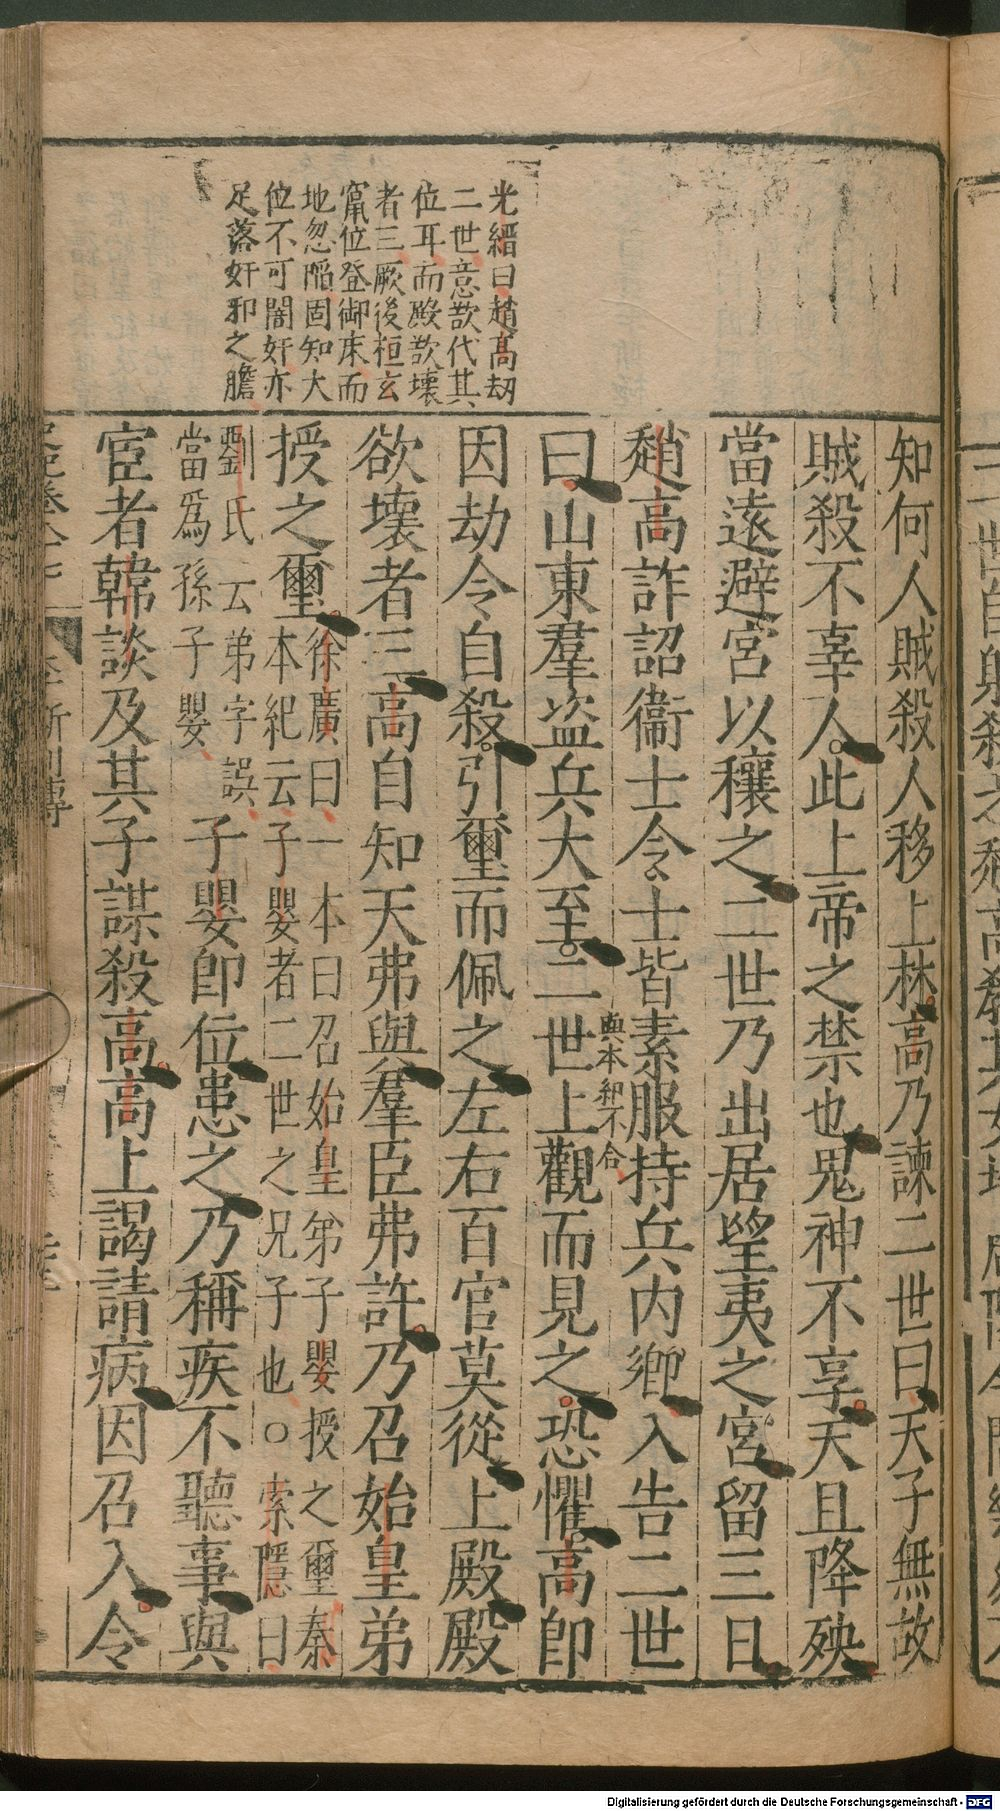 光縉曰趙高刼
二世意欲代其
位耳而殿欲壞
者三厥後桓玄
竄位登御床而
地忽陷固知大
位不可闇奸亦
足落奸邪之膽
知何人賊殺人移上林高乃諫二世曰天子無故
賊殺不辜人此上帝之禁也鬼神不享天且降殃
當遠避宮以穰之二世乃出居望夷之宮留三日
趙高詐詔衞士令士皆素服持兵内鄉入告二世
與本紀不合
曰山東羣盗兵大至二世上觀而見之恐懼高卽
因劫令自殺引璽而佩之左右百官莫從上殿殿
欲壞者三高自知天弗與羣臣弗許乃召始皇弟
授之璽
徐廣曰一本曰召始皇弟子子嬰授之璽秦
本紀云子嬰者二世之兄子也○索隱曰
劉氏云弟字誤
當爲孫子嬰
子嬰卽位患之乃稱疾不聽事與
宦者韓談及其子謀殺高高上謁請病因召入令
Digitalisierung gefördert durch die Deutsche Forschungsgemeinschaft - DFG